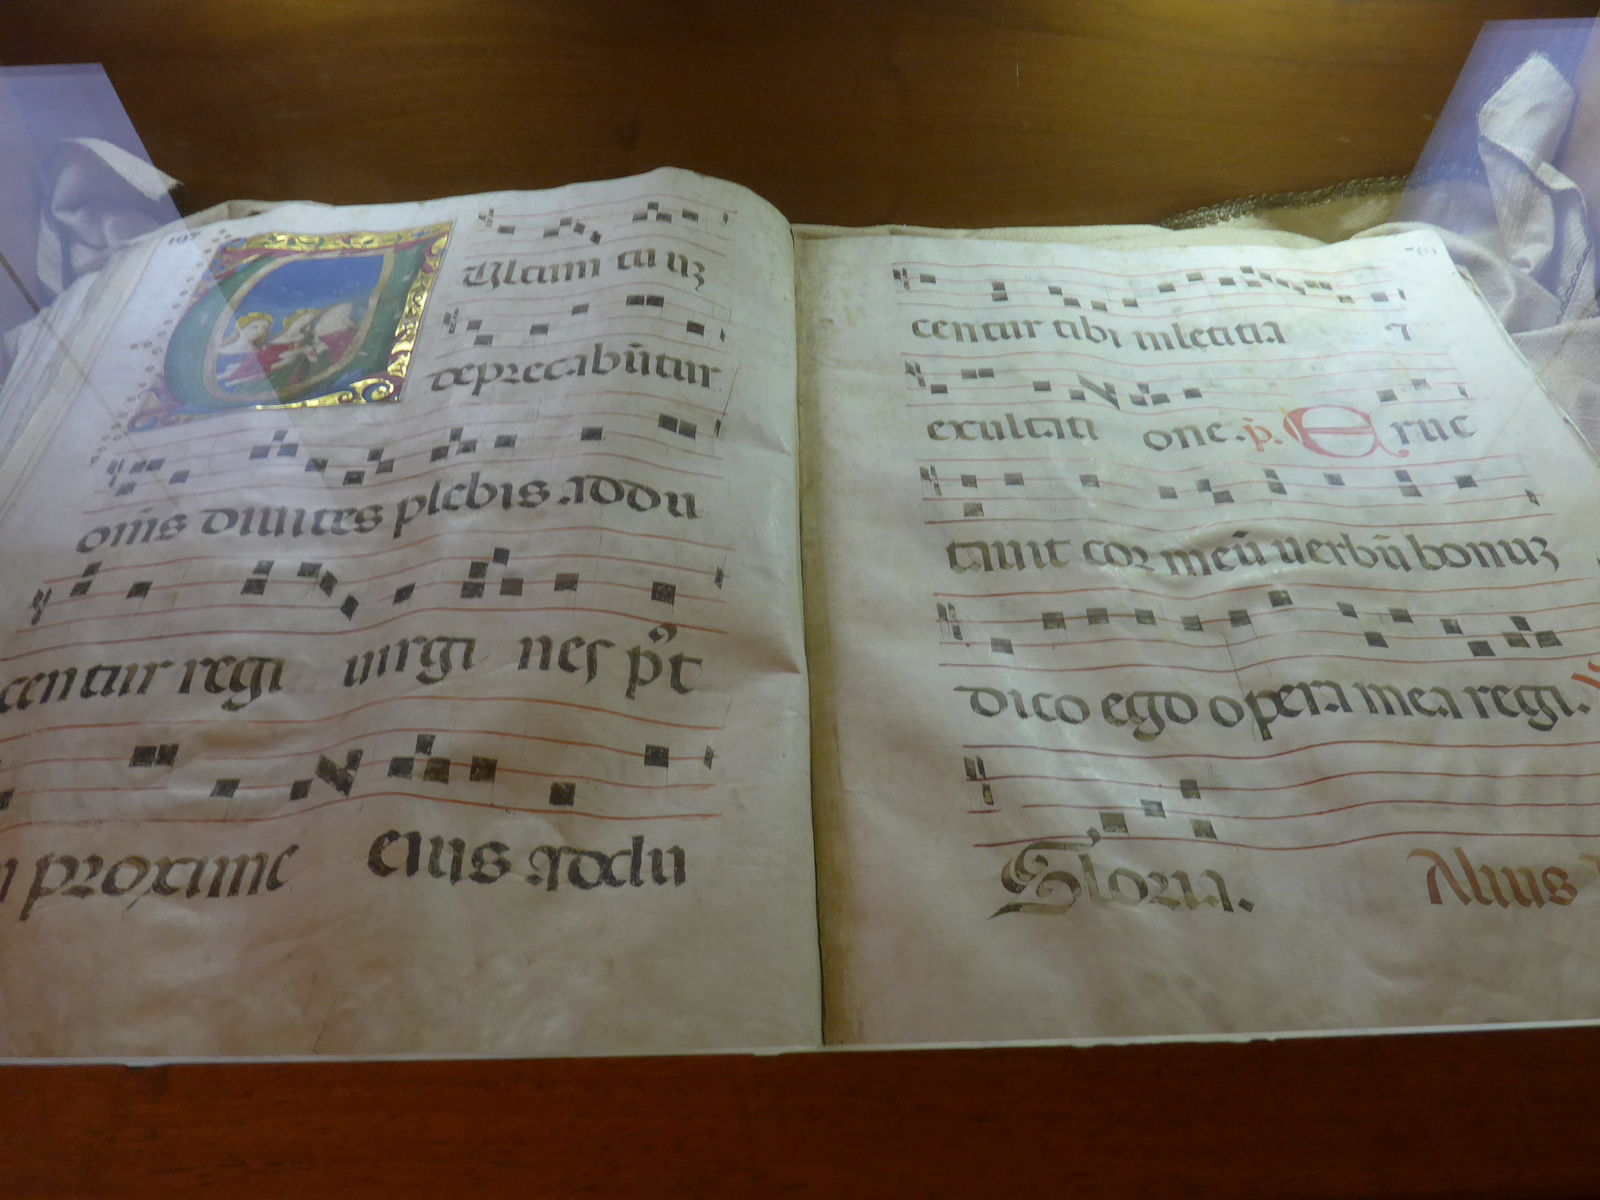 Vltum tuuz
deprecabūtur
om̄s diuites plebis. addu
centur regi uirgines p⁹t
proxime eius addu
centur tibi in letitia 7
exultatione. p̄. Eruc
tauit cor meū uerbū bonuz
dico ego opera mea regi.
Gloria. Alius